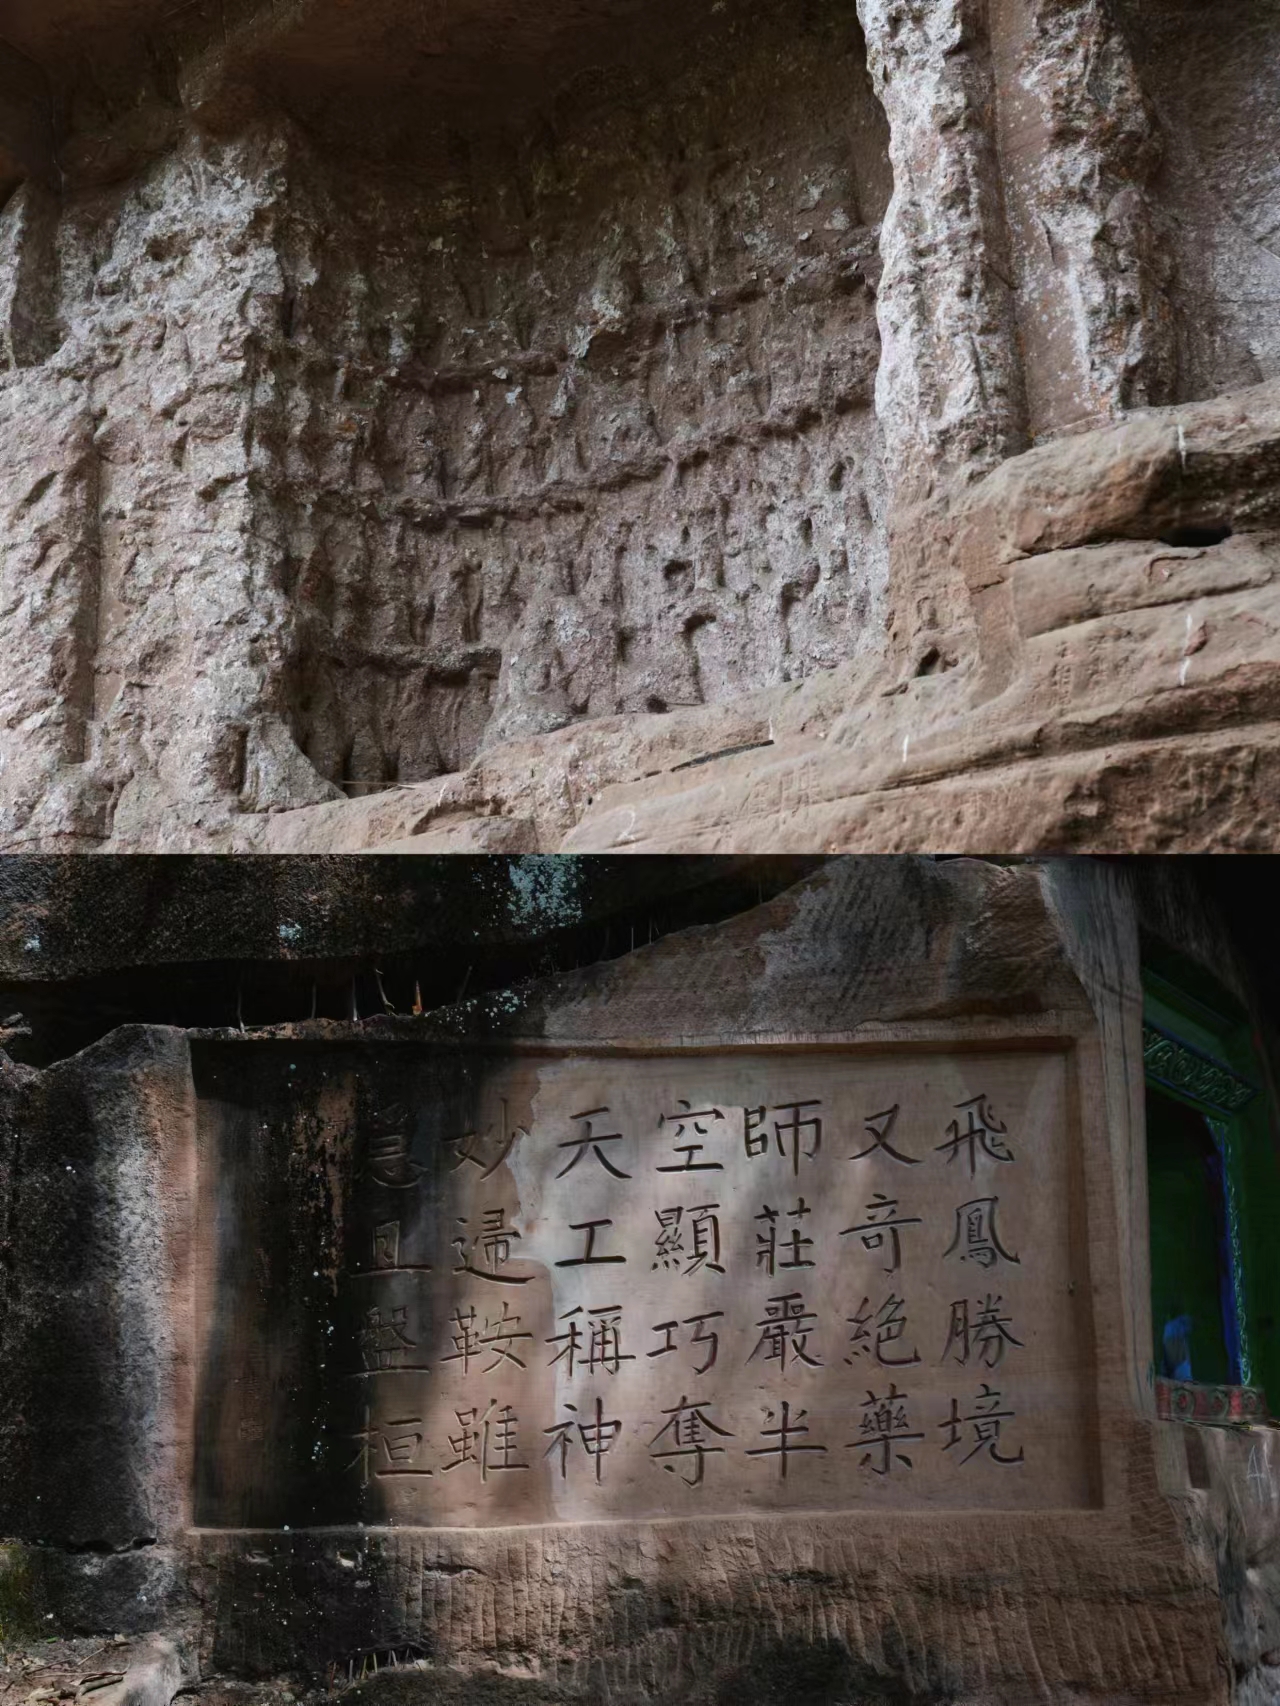 飛鳳勝境
又奇絶藥
師莊嚴半
空顯巧奪
天工稱神
妙歸鞍雖
急且盤桓